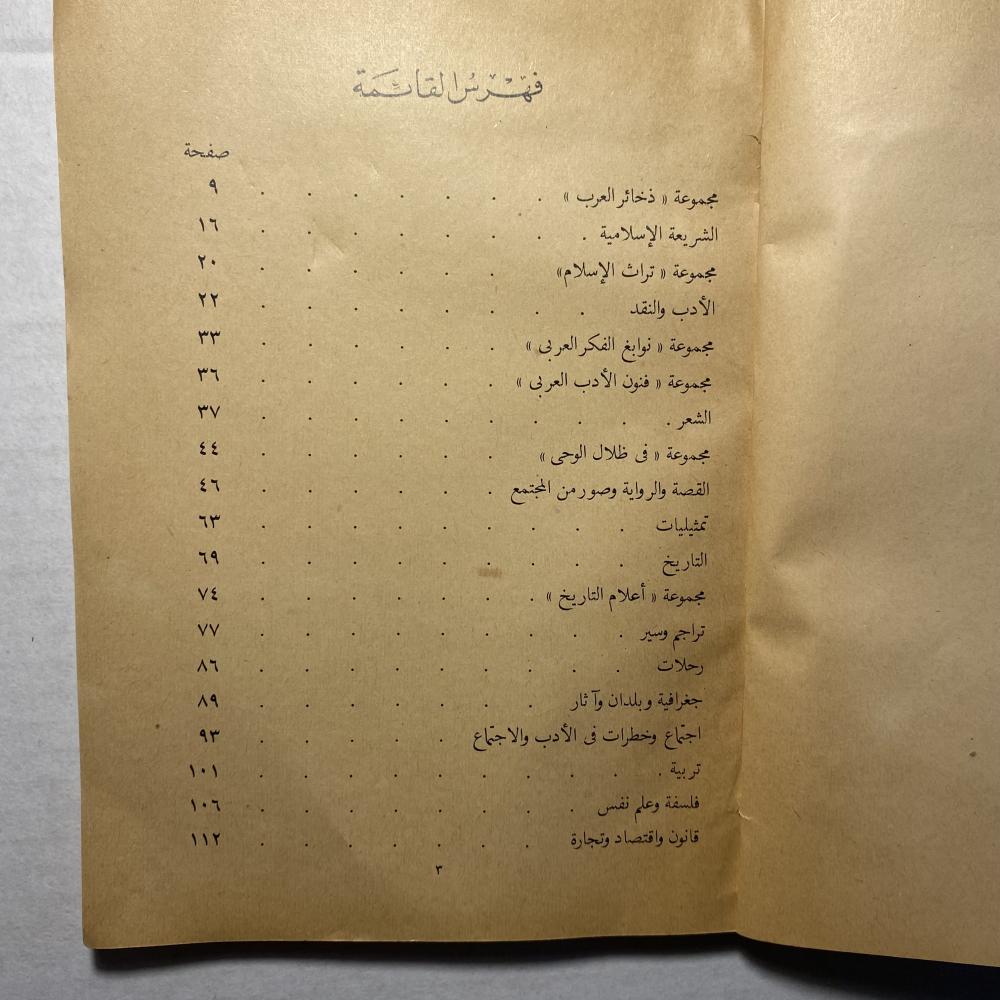 فهرس القائمة
صفحة
مجموعة « ذخائر العرب » . . . . . . . ٩
الشريعة الإسلامية . . . . . . . . ١٦
مجموعة « تراث الإسلام» . . . . . . ٢٠
الأدب والنقد . . . . . . . . ٢٢
مجموعة « نوابغ الفكر العربى » . . . . . . ٣٣
مجموعة « فنون الأدب العربى » . . . . . . ٣٦
الشعر . . . . . . . . . . ٣٧
مجموعة « فى ظلال الوحى » . . . . . . ٤٤
القصة والرواية وصور من المجتمع . . . . . . ٤٦
تمثيليات . . . . . . . . . ٦٣
التاريخ . . . . . . . . . ٦٩
مجموعة « أعلام التاريخ » . . . . . . . ٧٤
تراجم وسير . . . . . . . . . ٧٧
رحلات . . . . . . . . . ٨٦
جغرافية وبلدان وآثار . . . . . . . ٨٩
اجتماع وخطرات فى الأدب والاجتماع . . . . . ٩٣
تربية . . . . . . . . . . ١٠١
فلسفة وعلم نفس . . . . . . . . ١٠٦
قانون واقتصاد وتجارة . . . . . . . ١١٢
٣